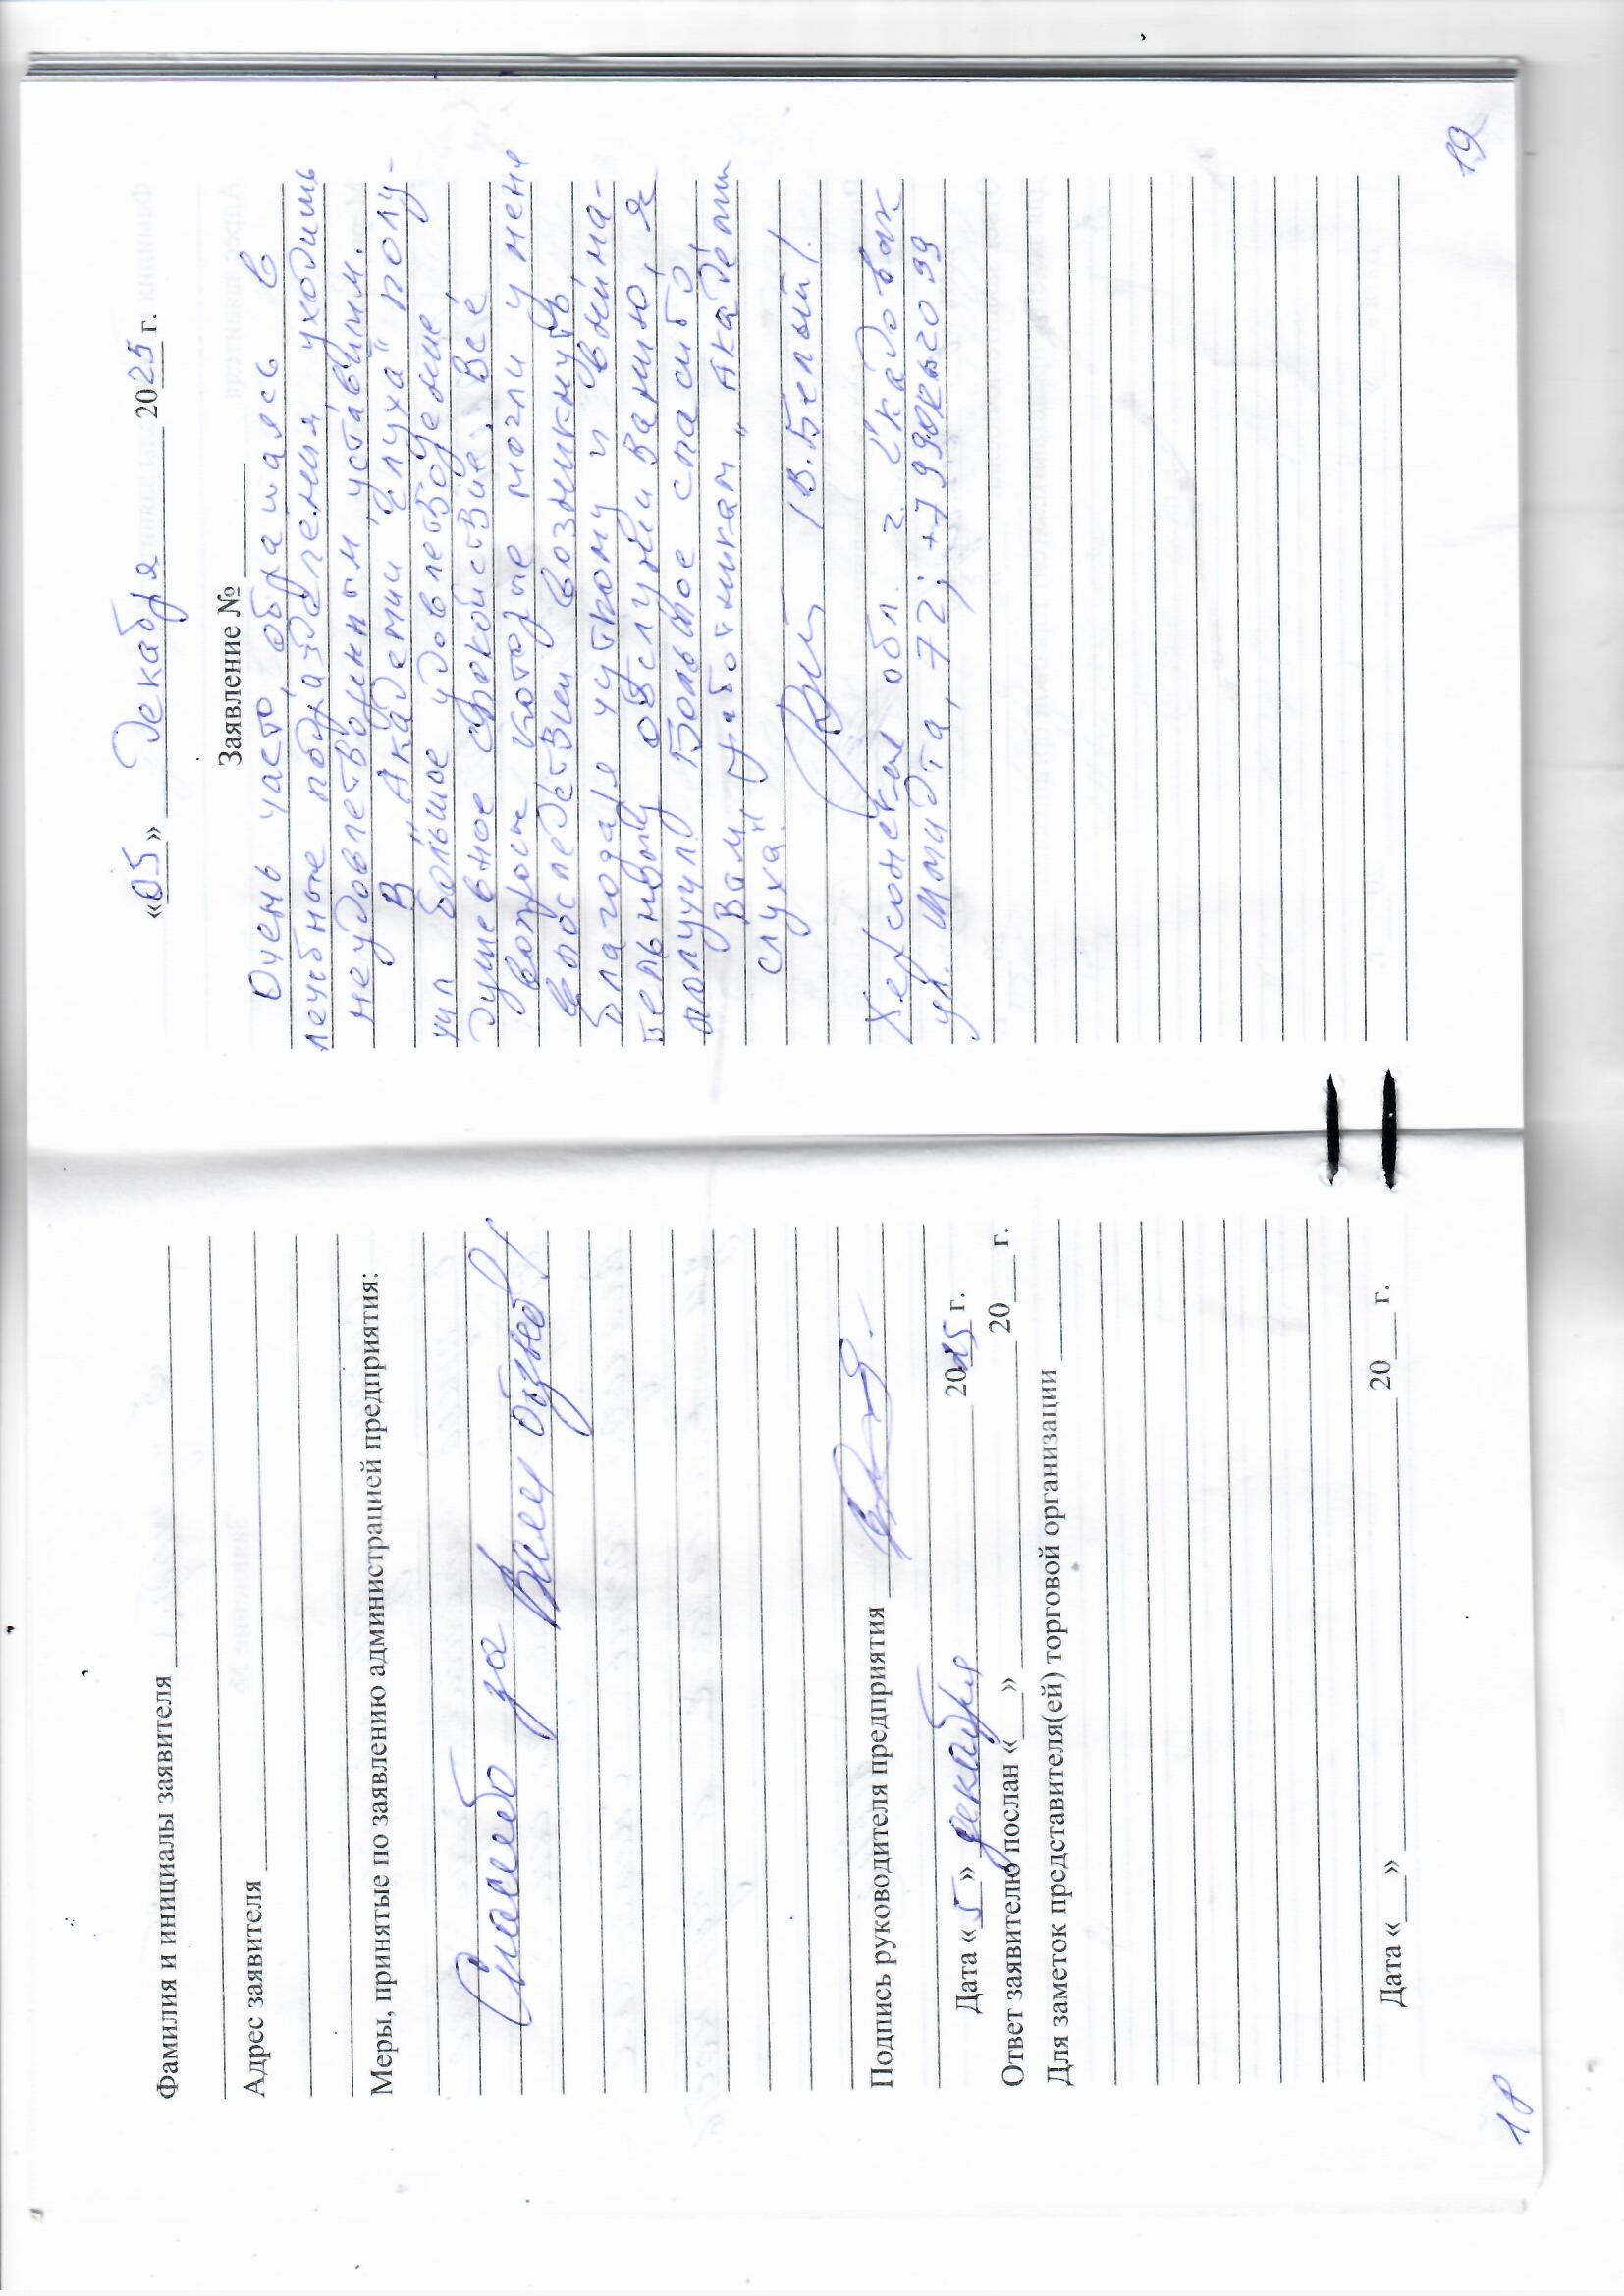 Фамилия и инициалы заявителя
Адрес заявителя
Меры, принятые по заявлению администрацией предприятия:
Спасибо за
Ваш отзыв!
Подпись руководителя предприятия
Дата «5» декабря 2025 г.
Ответ заявителю послан «___» 20___ г.
Для заметок представителя(ей) торговой организации
Дата «___» 20___ г.
18
«05» Декабря 2025 г.
Заявление №
Очень часто, обращаясь в
лечебные подразделения, уходишь
неудовлетворённым, уставшим.
В „Академии Слуха" полу-
чил большое удовлетворение
душевное спокойствие. Всё
вопросы которые могли у меня
впоследствии возникнуть
благодаря чуткому и внима-
тельному обслуживанию, я
получил. Большое спасибо
Вам, работникам „Академии
слуха"
/В. Белый/.
Херсонская обл. г. Скадовск
ул. Шмидта, 72;
19